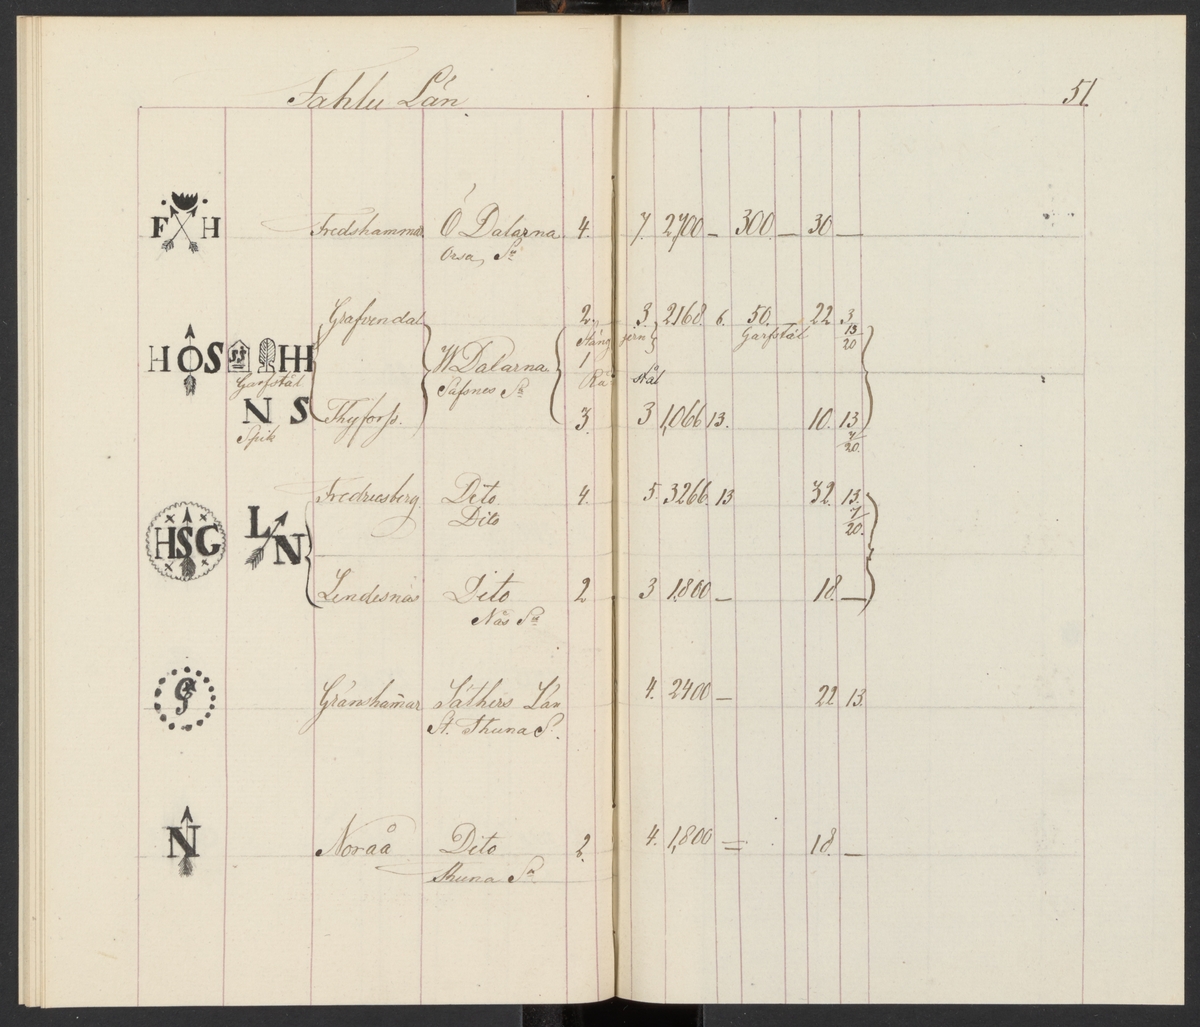 Fahlu Län
51
F H Fredshammar Ö Dalarna 4. 7. 2,700 — 300 — 30 —
Orsa, Sn
Grafvendal 2. 3. 2168. 6. 50. 22 3
Stång jern Garfstål 13/20
H O S SS HH W Dalarna 1
Garfstål Säfsnes Sn Rå stål
N S Thyforss. 3. 3 1,066 13. 10. 13
Spik 7/20.
Fredricsberg Dito 4. 5. 3266. 13 32. 13.
Dito 7/20.
HSG L N
Lindesnäs Dito 2 3 1,800 — 18. —
Nås Sn
G Grämshammar Säthers Län 4. 2400 — 22 13.
St. Thuna S.
N Noraå Dito 2. 4. 1,800 = 18. —
Thuna Sn